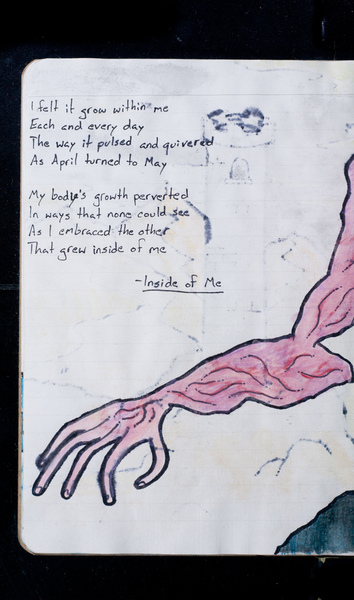 I felt it grow within me
Each and every day
The way it pulsed and quivered
As April turned to May
My body's growth perverted
In ways that none could see
As I embraced the other
That grew inside of me
-Inside of Me